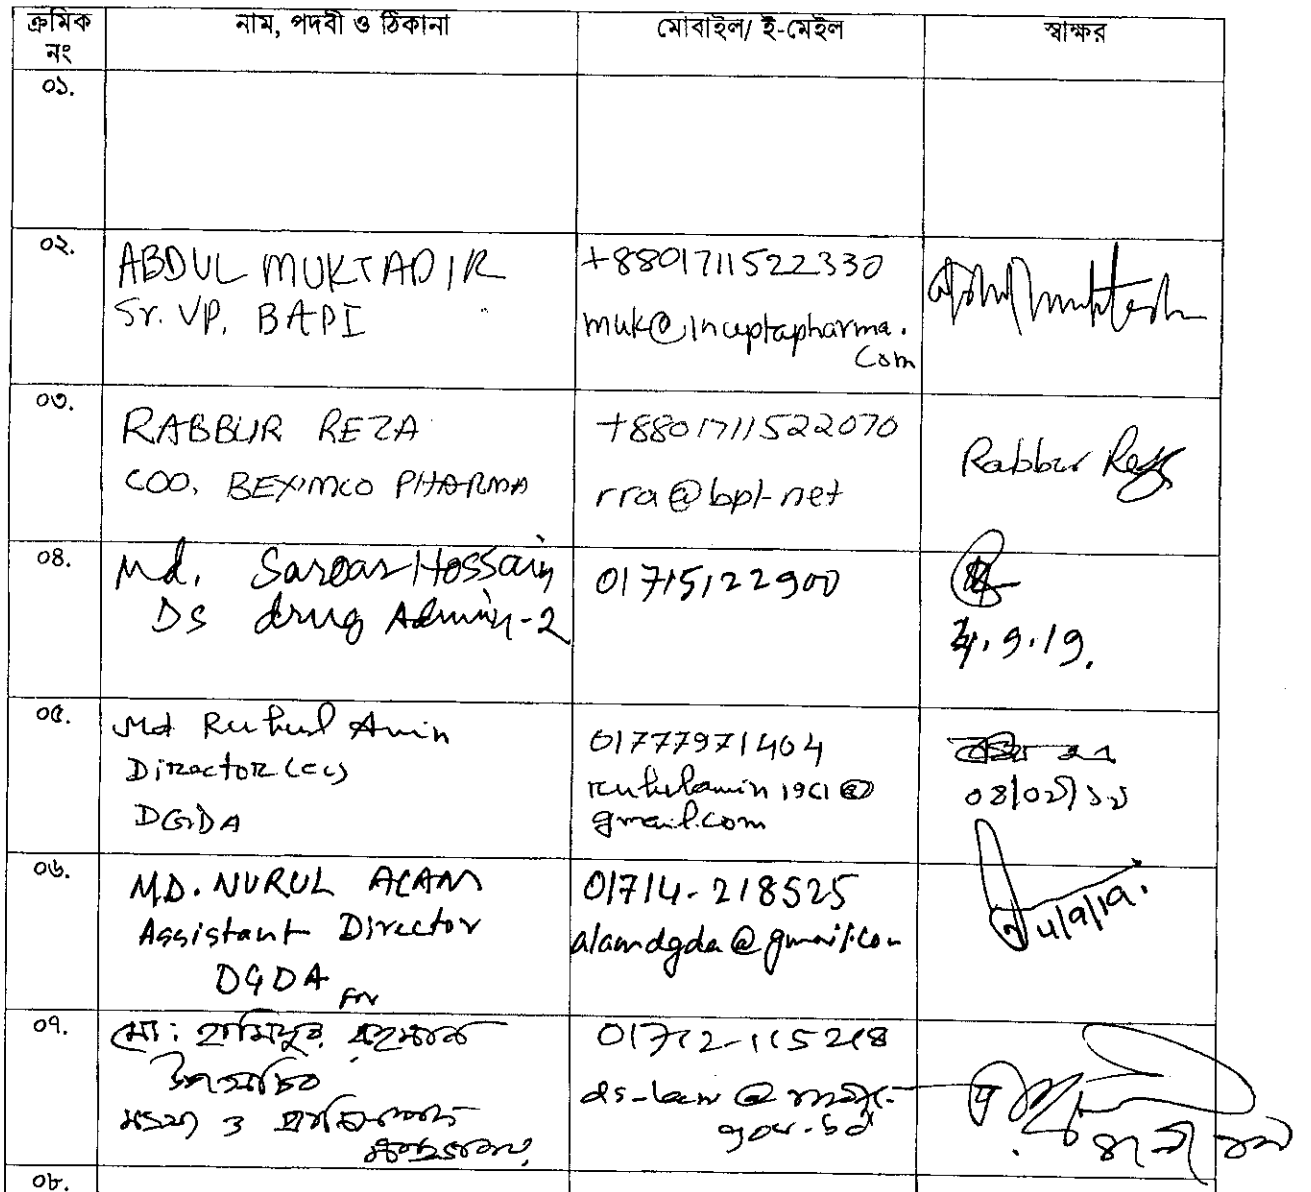 ক্রমিক নং
নাম, পদবী ও ঠিকানা
মোবাইল/ ই-মেইল
স্বাক্ষর
০১.
০২.
ABDUL MUKTADIR
Sr. VP, BAPI
+8801711522330
muk@inceptapharma.
com
০৩.
RABBUR REZA
COO, BEXIMCO PHARMA
+8801711522070
rra@bpl.net
Rabbur Reza
০৪.
Md. Saroar Hossain
DS drug Admin-2
01715122900
4.9.19.
০৫.
Md Ruhul Amin
Director (cc)
DGDA
01777971404
ruhulamin1961@
gmail.com
০৬.
MD. NURUL ALAM
Assistant Director
DGDA
01714-218525
alamdgda@gmail.com
4/9/19.
০৭.
মো: হামিদুর রহমান
উপসচিব
মৎস্য ও প্রাণিসম্পদ
মন্ত্রণালয়
01712-115218
ds-law@
gov.bd
০৮.